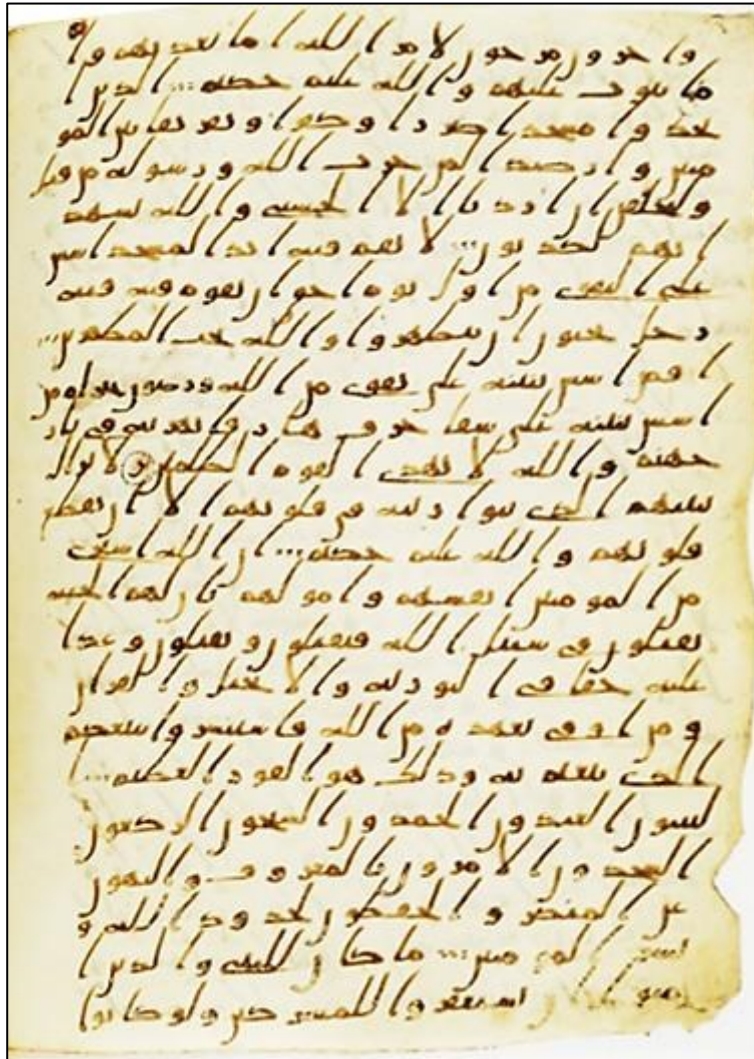 واخرون مرجون لامر الله اما يعذبهم وا
ما يتوب عليهم والله عليم حكيم ... الذين ا
تخذوا مسجدا ضررا وكفرا وتفريقا بين المو
منين وارصدا لمن حرب الله ورسوله من قبل
وليحلفن ان اردنا الا الحسنى والله يشهد
انهم لكذبون ... لا تقم فيه ابدا لمسجد اسس
على التقوى من اول يوم احق ان تقوم فيه فيه
رجل يحبون ان يتطهروا والله يحب المطهرين ...
افمن اسس بنينه على تقوى من الله ورضون خير ام من
اسس بنينه على شفا جرف هار فانهر به في نار
جهنم والله لا يهدى القوم الظلمين لا يزال
بنينهم الذى بنوا ريبة في قلوبهم الا ان تقطع
قلوبهم والله عليم حكيم ... ان الله اشترى
من المومنين انفسهم وامولهم بان لهم الجنة
يقتلون في سبيل الله فيقتلون ويقتلون وعدا
عليه حقا في التورية والانجيل والقران
ومن اوفى بعهده من الله فاستبشروا ببيعكم
الذى بيعتم به وذلك هو الفوز العظيم ... ا
لتيبون العبدون الحمدون السيحون الركعون
السجدون الامرون بالمعروف والنهون
عن المنكر والحفظون لحدود الله و
بشر المومنين ... ما كان للنبى والذين ا
منوا ان يستغفروا للمشركين ولو كانوا